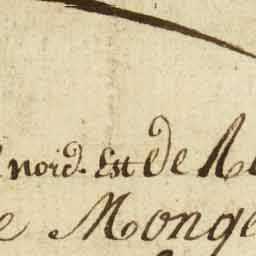 nord. Est de
Monge